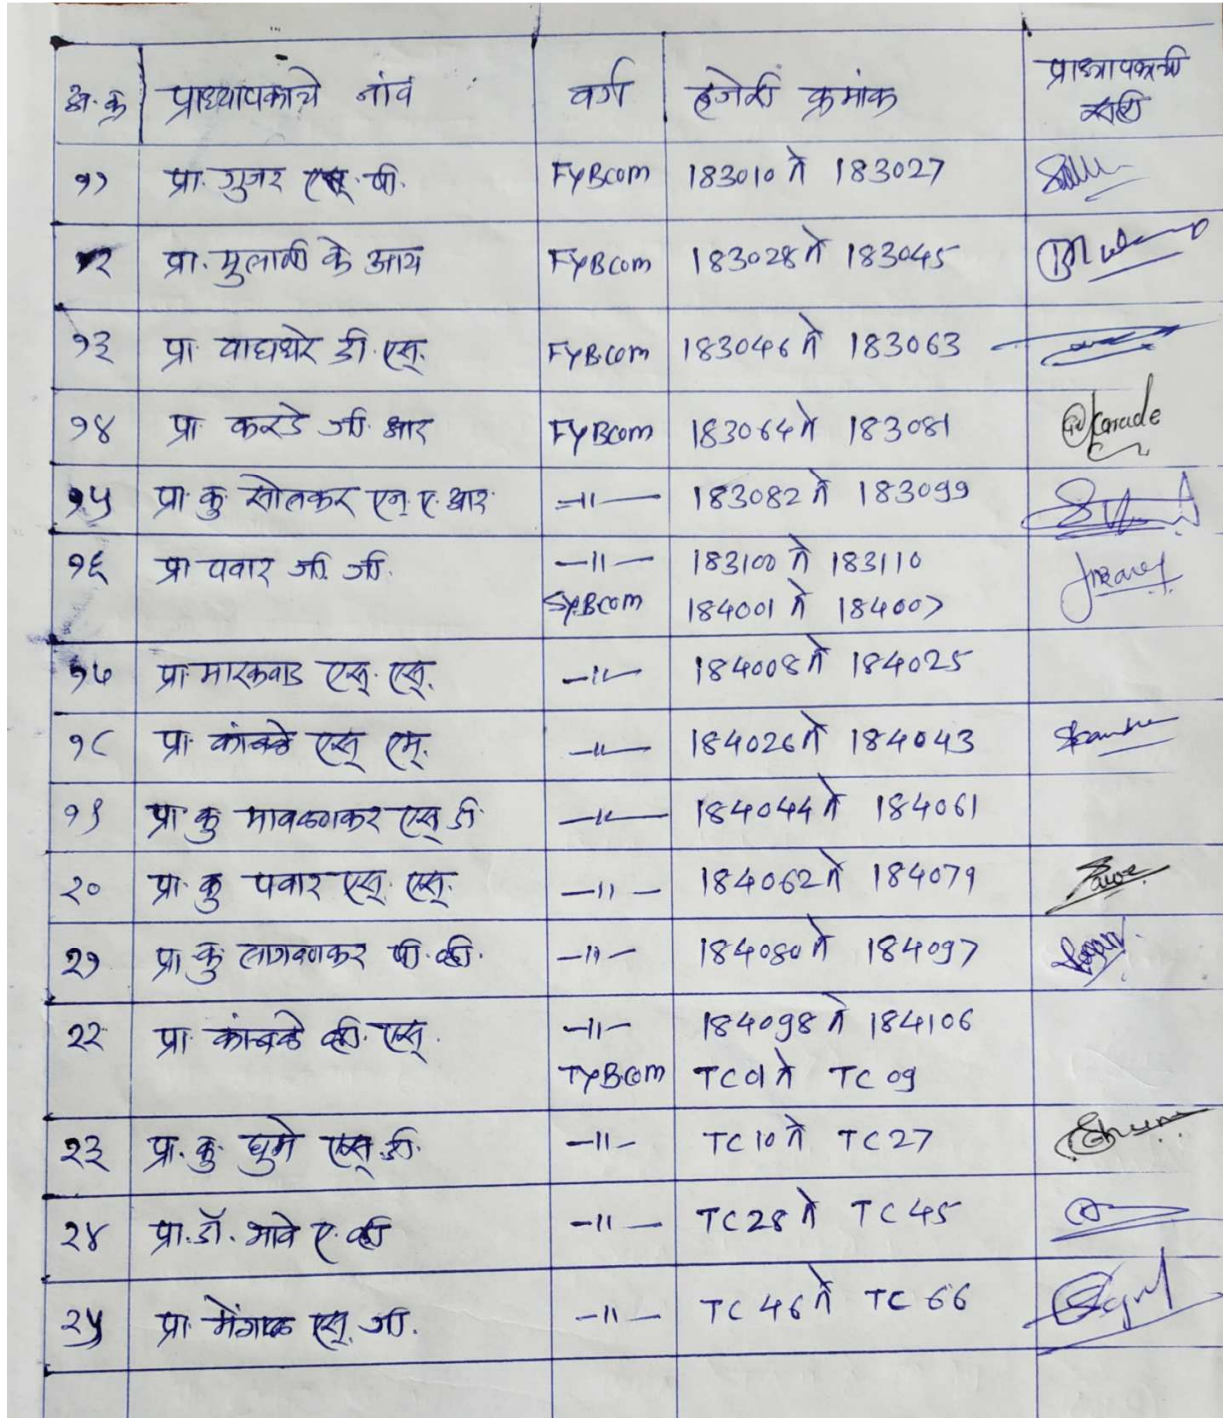 अ. क्र प्राध्यापकाचे नांव वर्ग हजेरी क्रमांक प्राध्यापकाची सही
११ प्रा. गुजर एस्. बी. FYBcom 183010 ते 183027
१२ प्रा. मुलाणी के आय FYBcom 183028 ते 183045
१३ प्रा वाघधरे डी. एस्. FYBcom 183046 ते 183063
१४ प्रा करडे जी. आर FYBcom 183064 ते 183081 Karade
१५ प्रा. कु सोलकर एन्. ए. आर. —11— 183082 ते 183099
१६ प्रा पवार जी. जी. —11— 183100 ते 183110
SYBcom 184001 ते 184007
१७ प्रा मारकवाड एस्. एस्. —11— 184008 ते 184025
१८ प्रा. कांबळे एस् एम्. —11— 184026 ते 184043
१९ प्रा. कु मावळणकर एस् डी. —11— 184044 ते 184061
२० प्रा. कु पवार एस्. एस्. —11— 184062 ते 184079
२१ प्रा. कु लागवणकर बी. व्ही. —11— 184080 ते 184097
२२ प्रा. कांबळे व्ही. एस्. —11— 184098 ते 184106
TYBcom TC01 ते TC 09
२३ प्रा. कु. घुमे एस्. डी. —11— TC10 ते TC27
२४ प्रा. डॉ. भावे ए. व्ही —11— TC28 ते TC45
२५ प्रा. मेंगाळ एस्. जी. —11— TC 46 ते TC 66